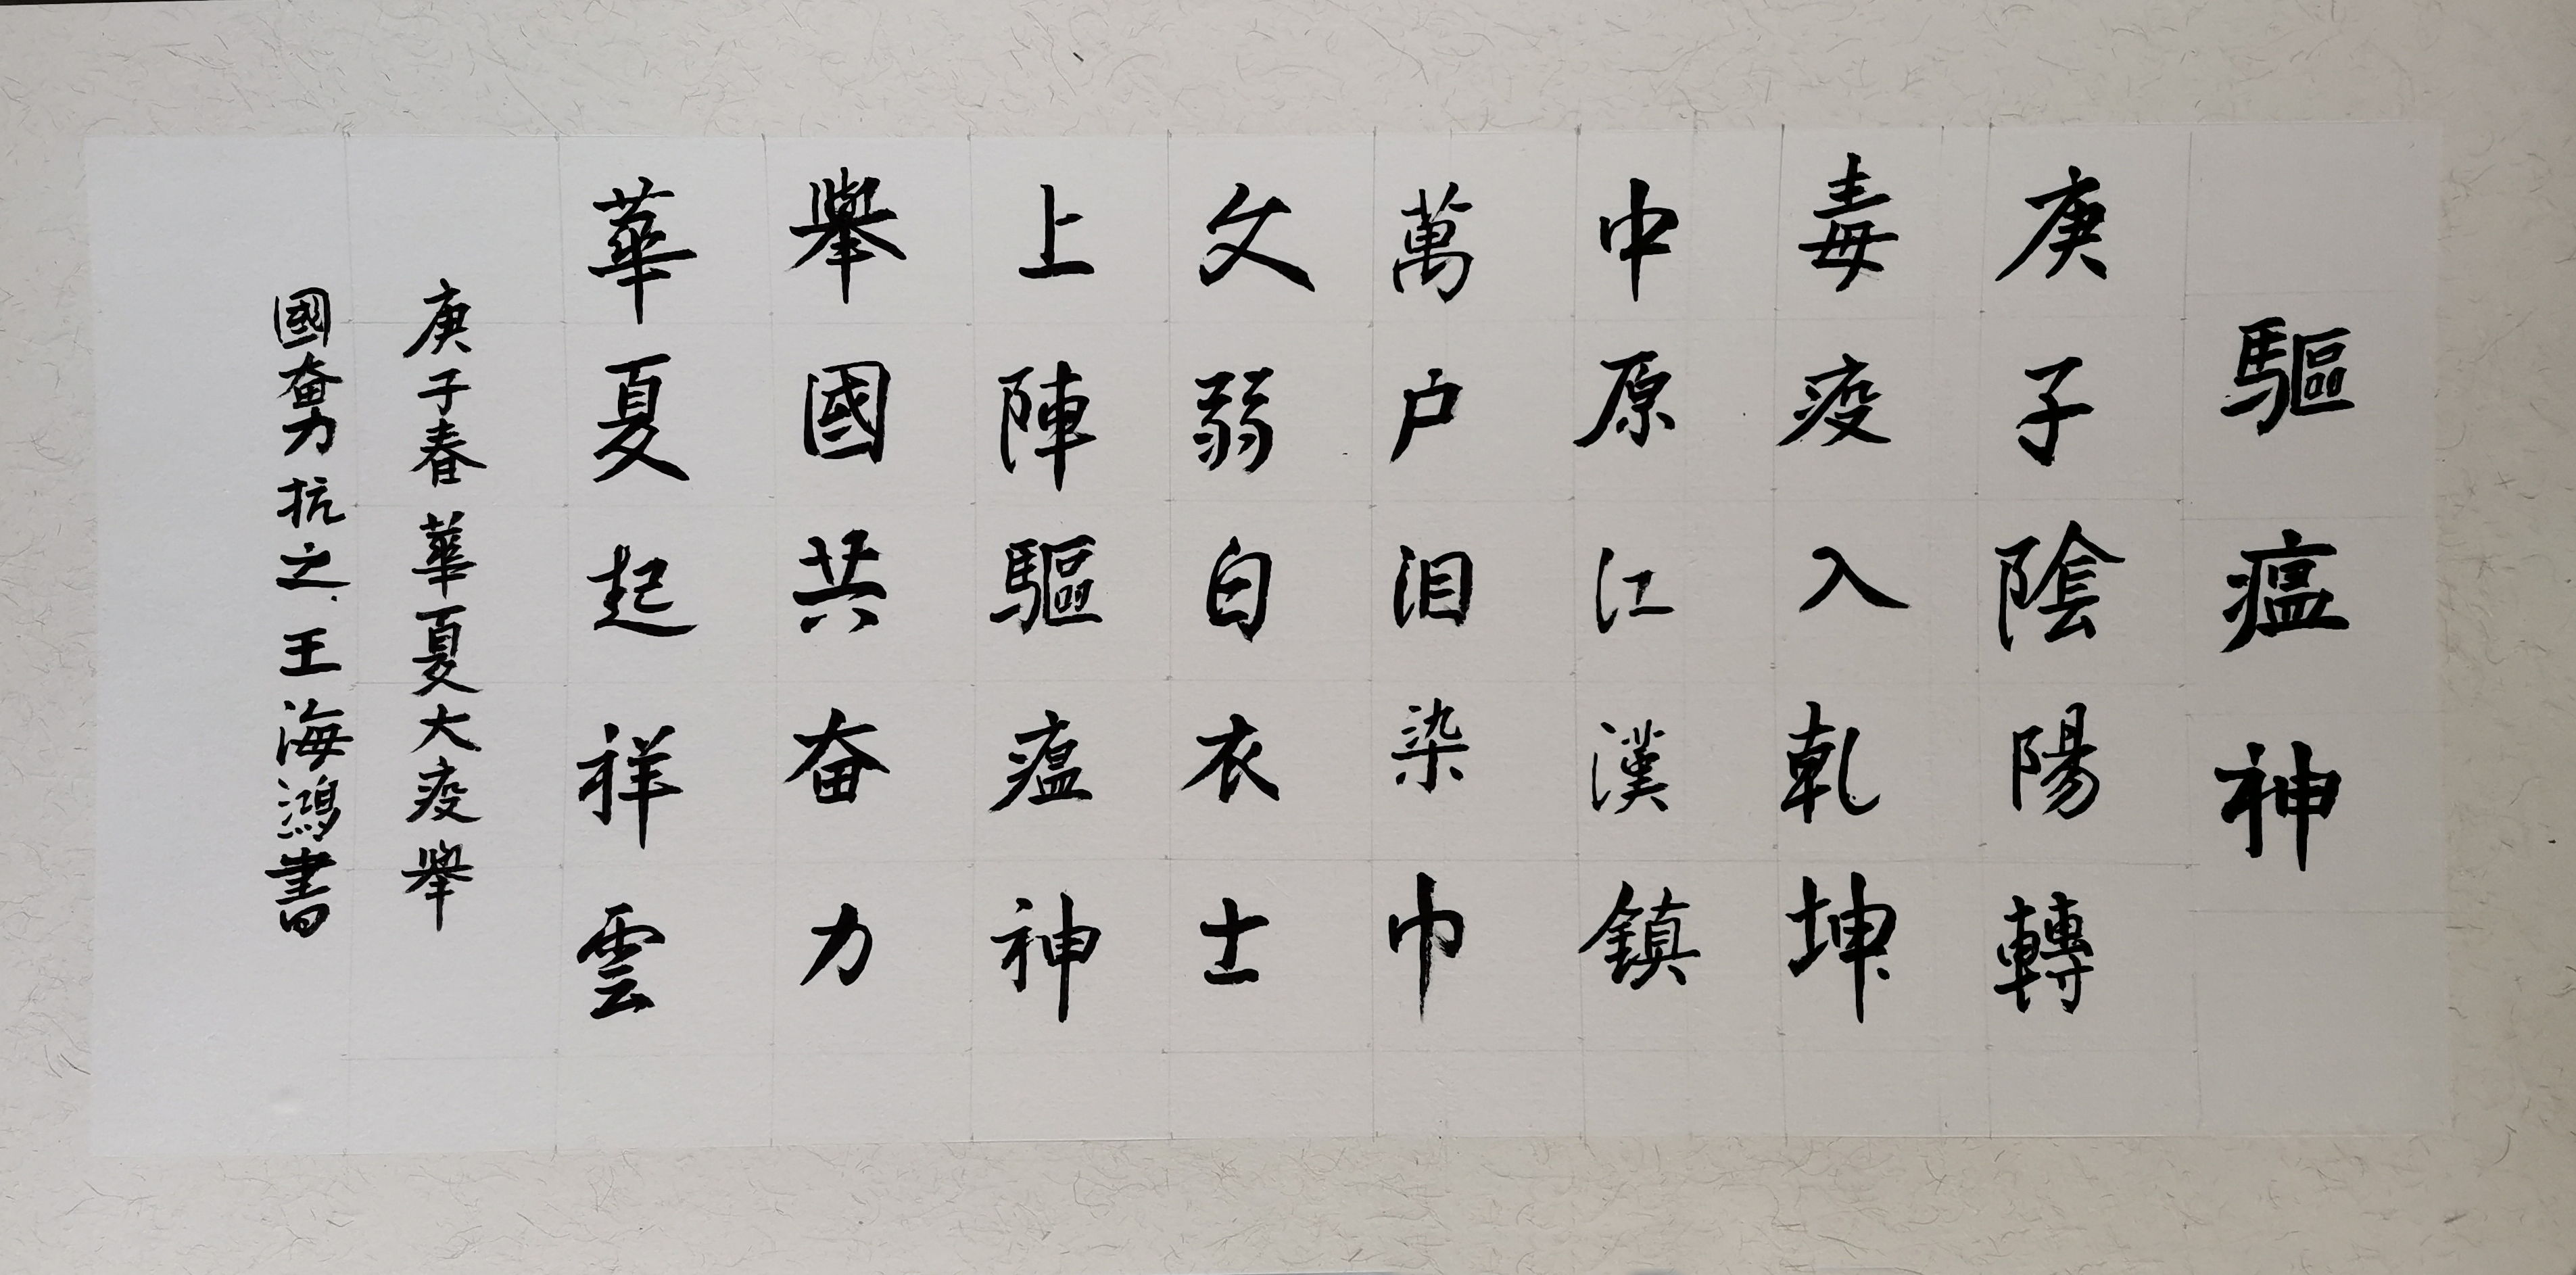 驅瘟神
庚子陰陽轉
毒疫入乾坤
中原江漢鎮
萬户泪染巾
文弱白衣士
上陣驅瘟神
舉國共奋力
華夏起祥雲
庚子春華夏大疫舉
國奮力抗之王海鴻書